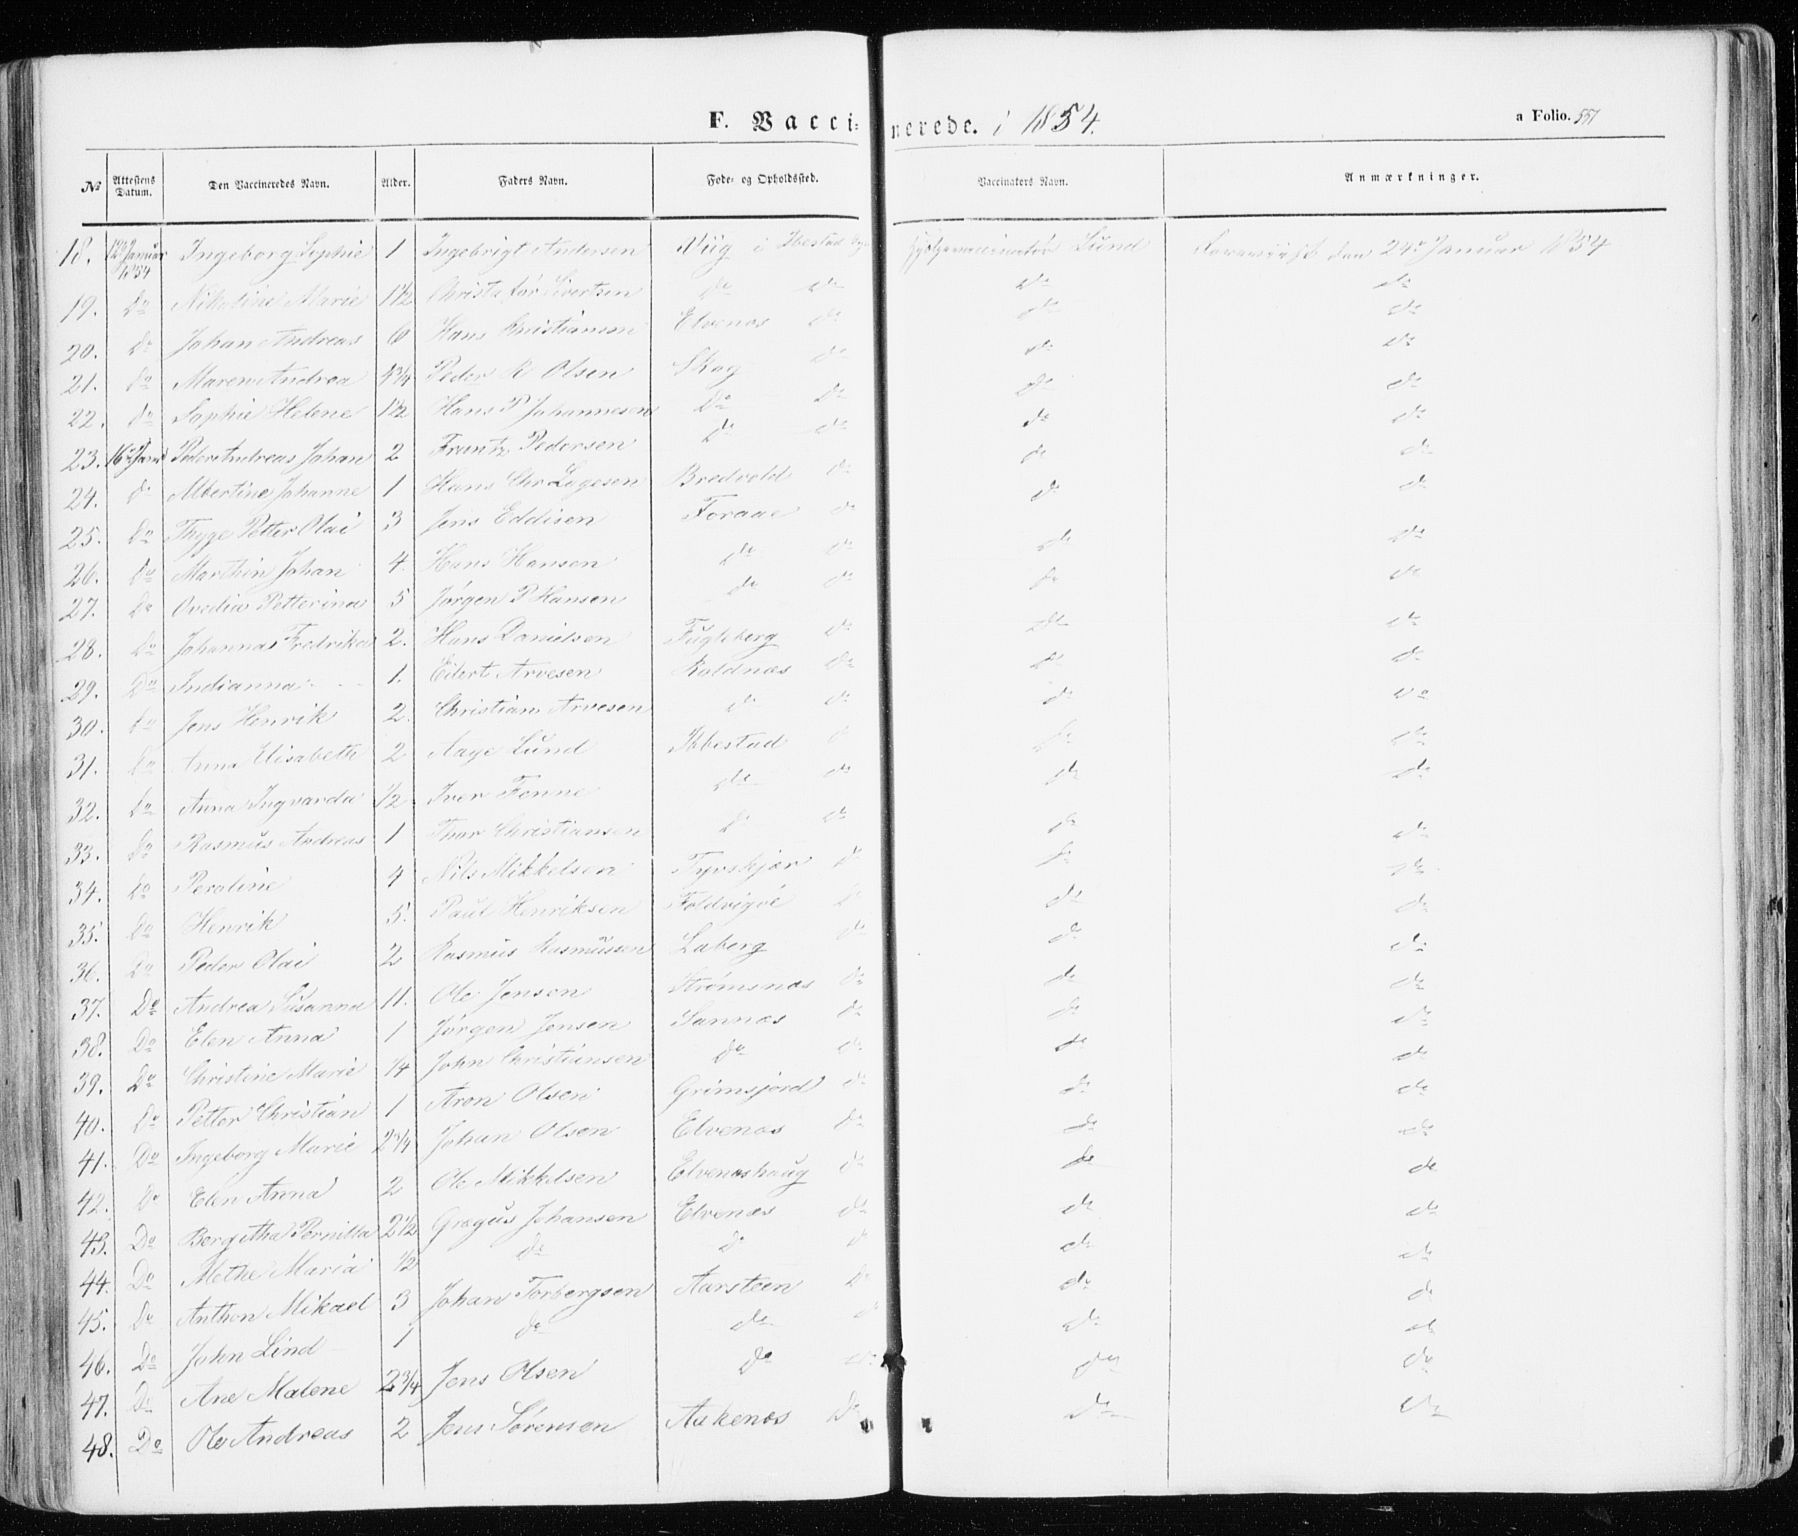 F. Vaccinerede. i 1854.
a Folio. 551
No Attestens Datum. Den Vaccineredes Navn. Alder. Faders Navn. Føde- og Opholdssted. Vaccinators Navn. Anmærkninger.
18. 12te Januar 1854 Ingeborg Sophie 1 Ingebrigt Andersen i Ibestad Lund den 24de Januar 1854
19. do Nikoline Marie 1 1/2 Christofør Sivertsen do do do do
20. do Johan Andreas 6 Hans Kristiansen Elvenæs do do do
21. do Maren Andrea 4 3/4 Peder R Olsen Skog do do do
22. do Sophie Helene 1 1/2 Hans P Johannesen Do do do do
23. 16de Jan Peder Andreas Johan 2 Frantz Pedersen do do do do
24. do Albertine Johanne 1 Hans Chr Legesen Bredvold do do do
25. Do Thyge Petter Olai 3 Jens Eddisen Foraae do do do
26. do Marthin Johan 4. Hans Hansen do do do do
27. do Ovedia Petterina 5 Jørgen P Hansen do do do do
28. Do Johanna Fredrika 2. Hans Danielsen Fugleberg do do do
29. Do Indianna 1. Eilert Arvesen Roldnæs do do do
30. do Jens Henrik 2. Christian Arvesen do do do do
31. do Anna Elisabeth 2 Aage Lund Ibbestad do do do
32. do Anna Ingvarda 1/2 Iver Fonne do do do do
33. do Rasmus Andreas 1 Thor Christiansen do do do do
34. do Peroline 4 Nils Mikkelsen Tyvskjær do do do
35. Do Henrik 5. Paul Henriksen Foldvigøe do do do
36. Do Peder Olai 2 Rasmus Rasmussen Laberg do do do
37. Do Andrea Susanna 11. Ole Jensen Strømsnæs do do do
38. Do Elen Anna 1 Jørgen Jensen Sannæs do do do
39. Do Christine Marie 1/4 John Christiansen do do do do
40. Do Petter Christian 1 Aron Olsen Grimsjord do do do
41. Do Ingeborg Marie 2 3/4 Johan Olsen Elvenæs do do do
42. Do Elen Anna 2 Ole Mikkelsen Elvenæshaug do do do
43. Do Bergitha Pernilla 2 1/2 Gregus Johansen Elvenæs do do do
44. Do Methe Maria 1/2 do do do do do
45. Do Anthon Mikael 3 Johan Torbergsen Aarsteen Do do do
46. Do John Lind 1 do do do do do
47. Do Ane Malene 2 3/4 Jens Olsen Do do do do
48. Do Ole Andreas 2 Jens Sørensen Aakenæs Do do do